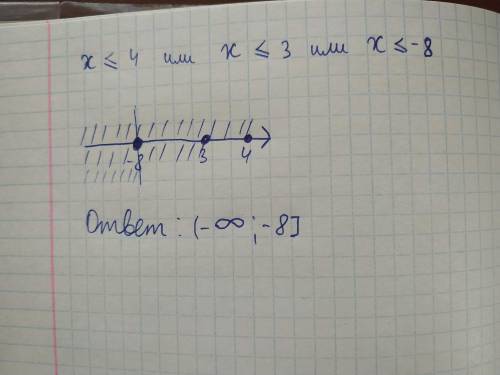 x ≤ 4 или x ≤ 3 или x ≤ -8
-8 3 4
Ответ: (-∞; -8]